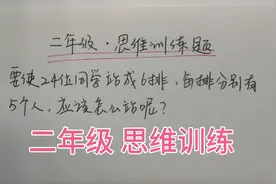 二年级·思维训练题
要使24位同学站成6排,每排分别有
5个人,应该怎么站呢?
二年级 思维训练